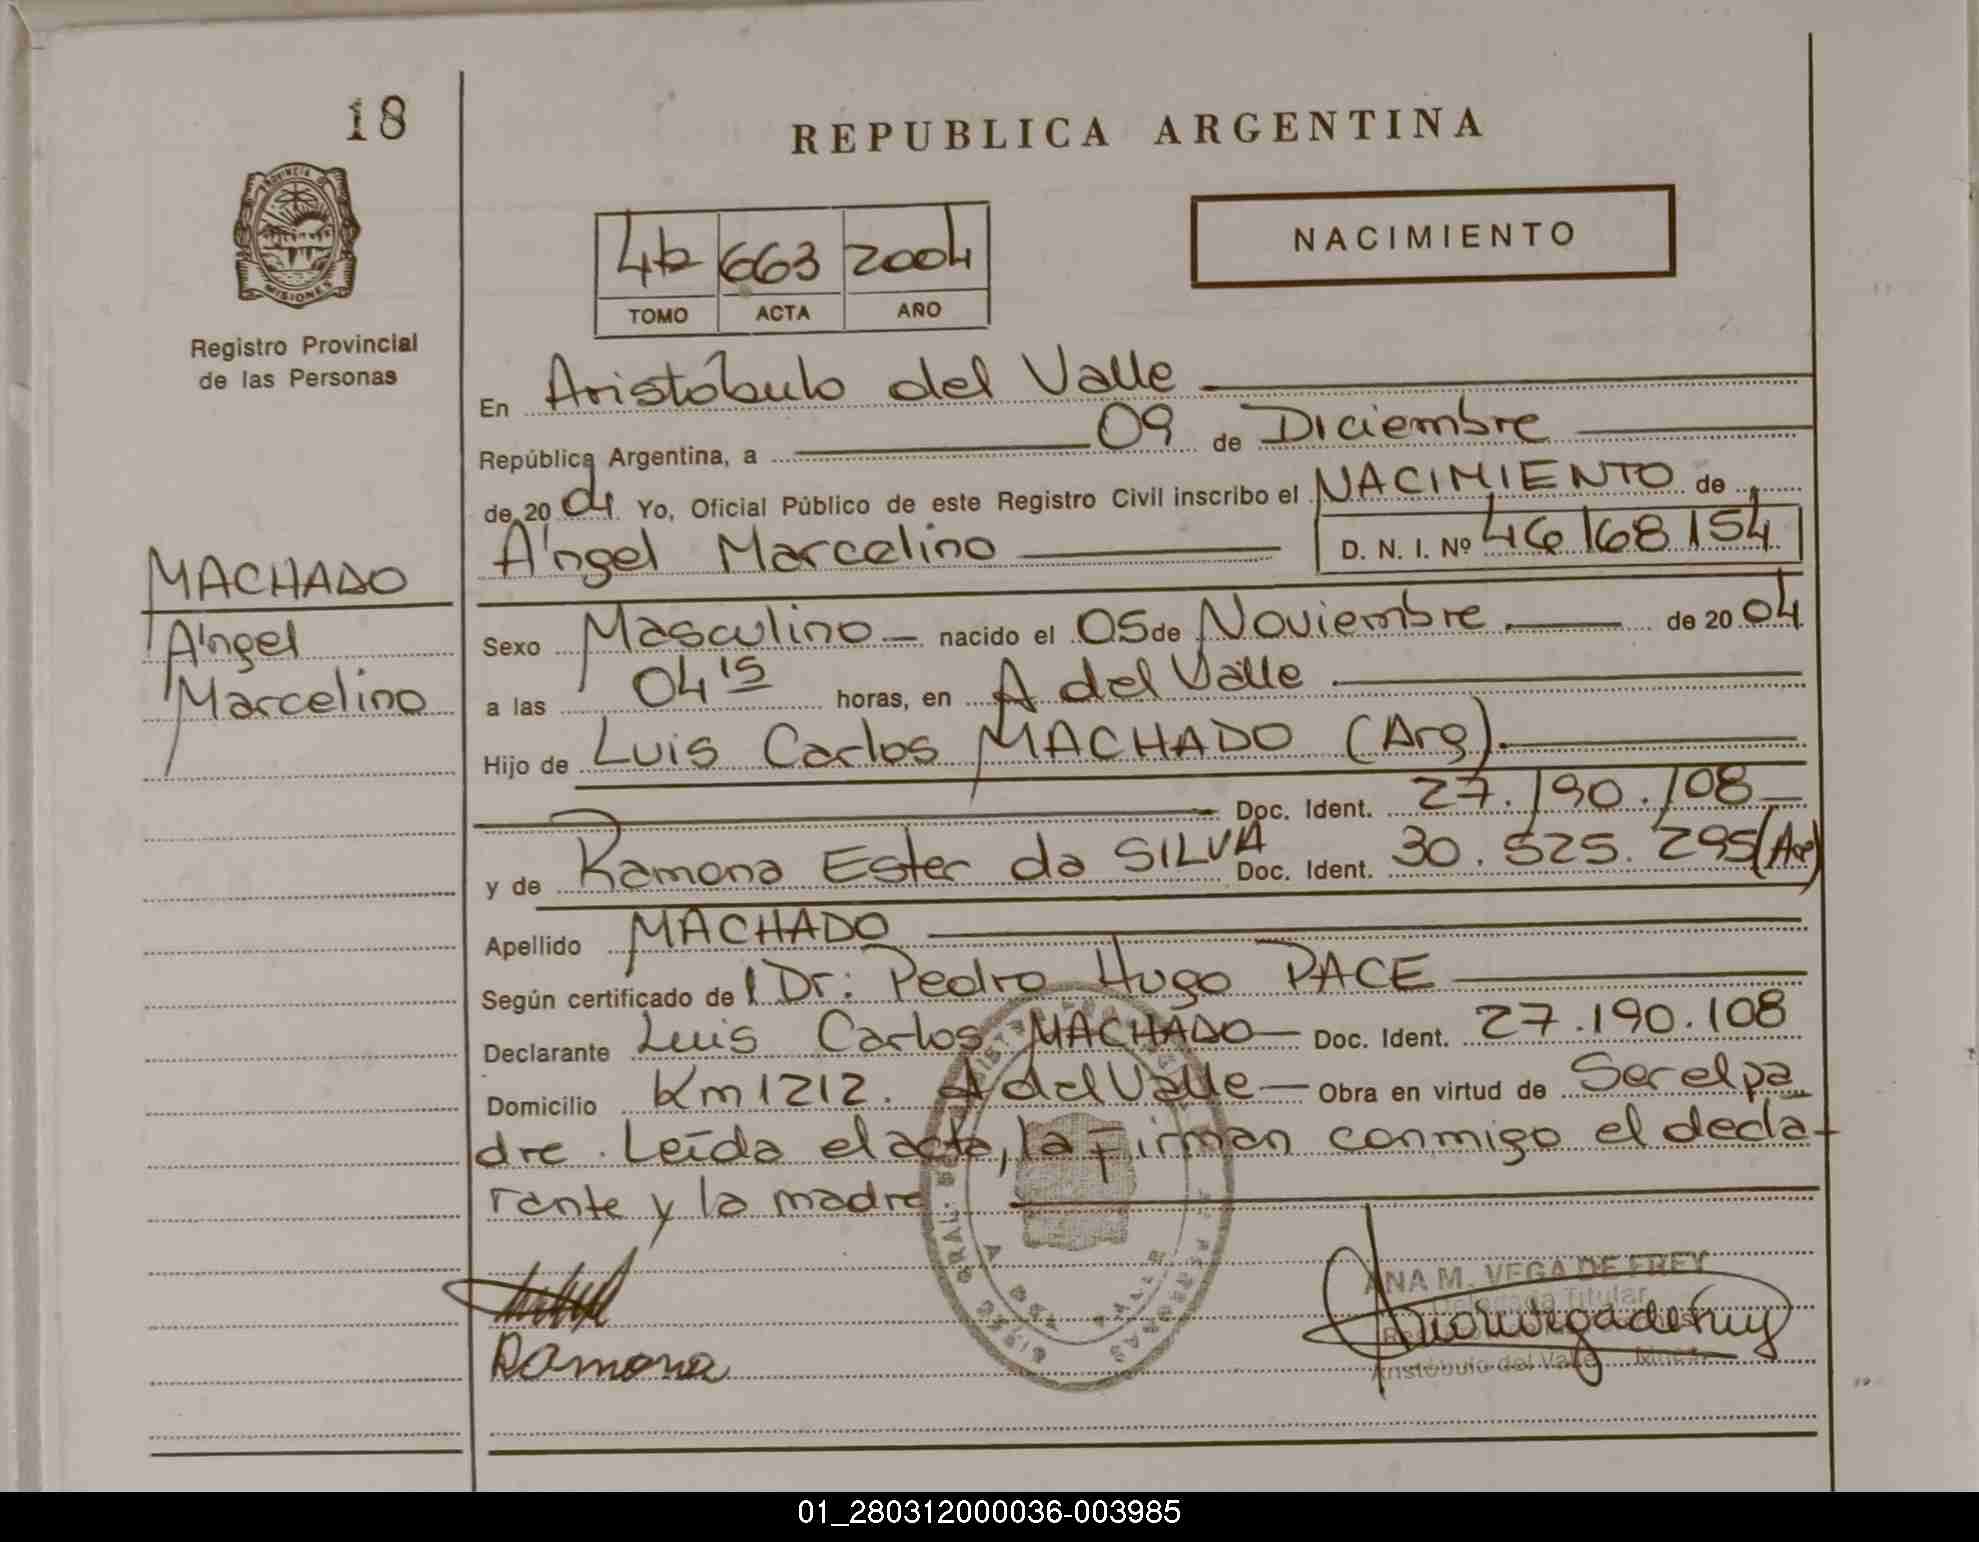 18
REPUBLICA ARGENTINA
PROVINCIA DE
MISIONES
Registro Provincial
de las Personas
4b 663 2004
TOMO ACTA AÑO
NACIMIENTO
En Aristóbulo del Valle
República Argentina, a 09 de Diciembre
de 20 04 Yo, Oficial Público de este Registro Civil inscribo el NACIMIENTO de
Ángel Marcelino D. N. I. Nº 46168154
MACHADO
Ángel
Marcelino
Sexo Masculino nacido el 05 de Noviembre de 20 04
a las 04 15 horas, en A del Valle
Hijo de Luis Carlos MACHADO (Arg)
Doc. Ident. 27.190.108
y de Ramona Ester da SILVA Doc. Ident. 30.525.295 (Arg)
Apellido MACHADO
Según certificado de Dr: Pedro Hugo PACE
Declarante Luis Carlos MACHADO Doc. Ident. 27.190.108
Domicilio Km 1212. A del Valle Obra en virtud de Ser el pa
dre. Leída el acta, la firman conmigo el decla-
rante y la madre
ANA M. VEGA DE FREY
Delegada Titular
Aristóbulo del Valle
Ramona
01_280312000036-003985